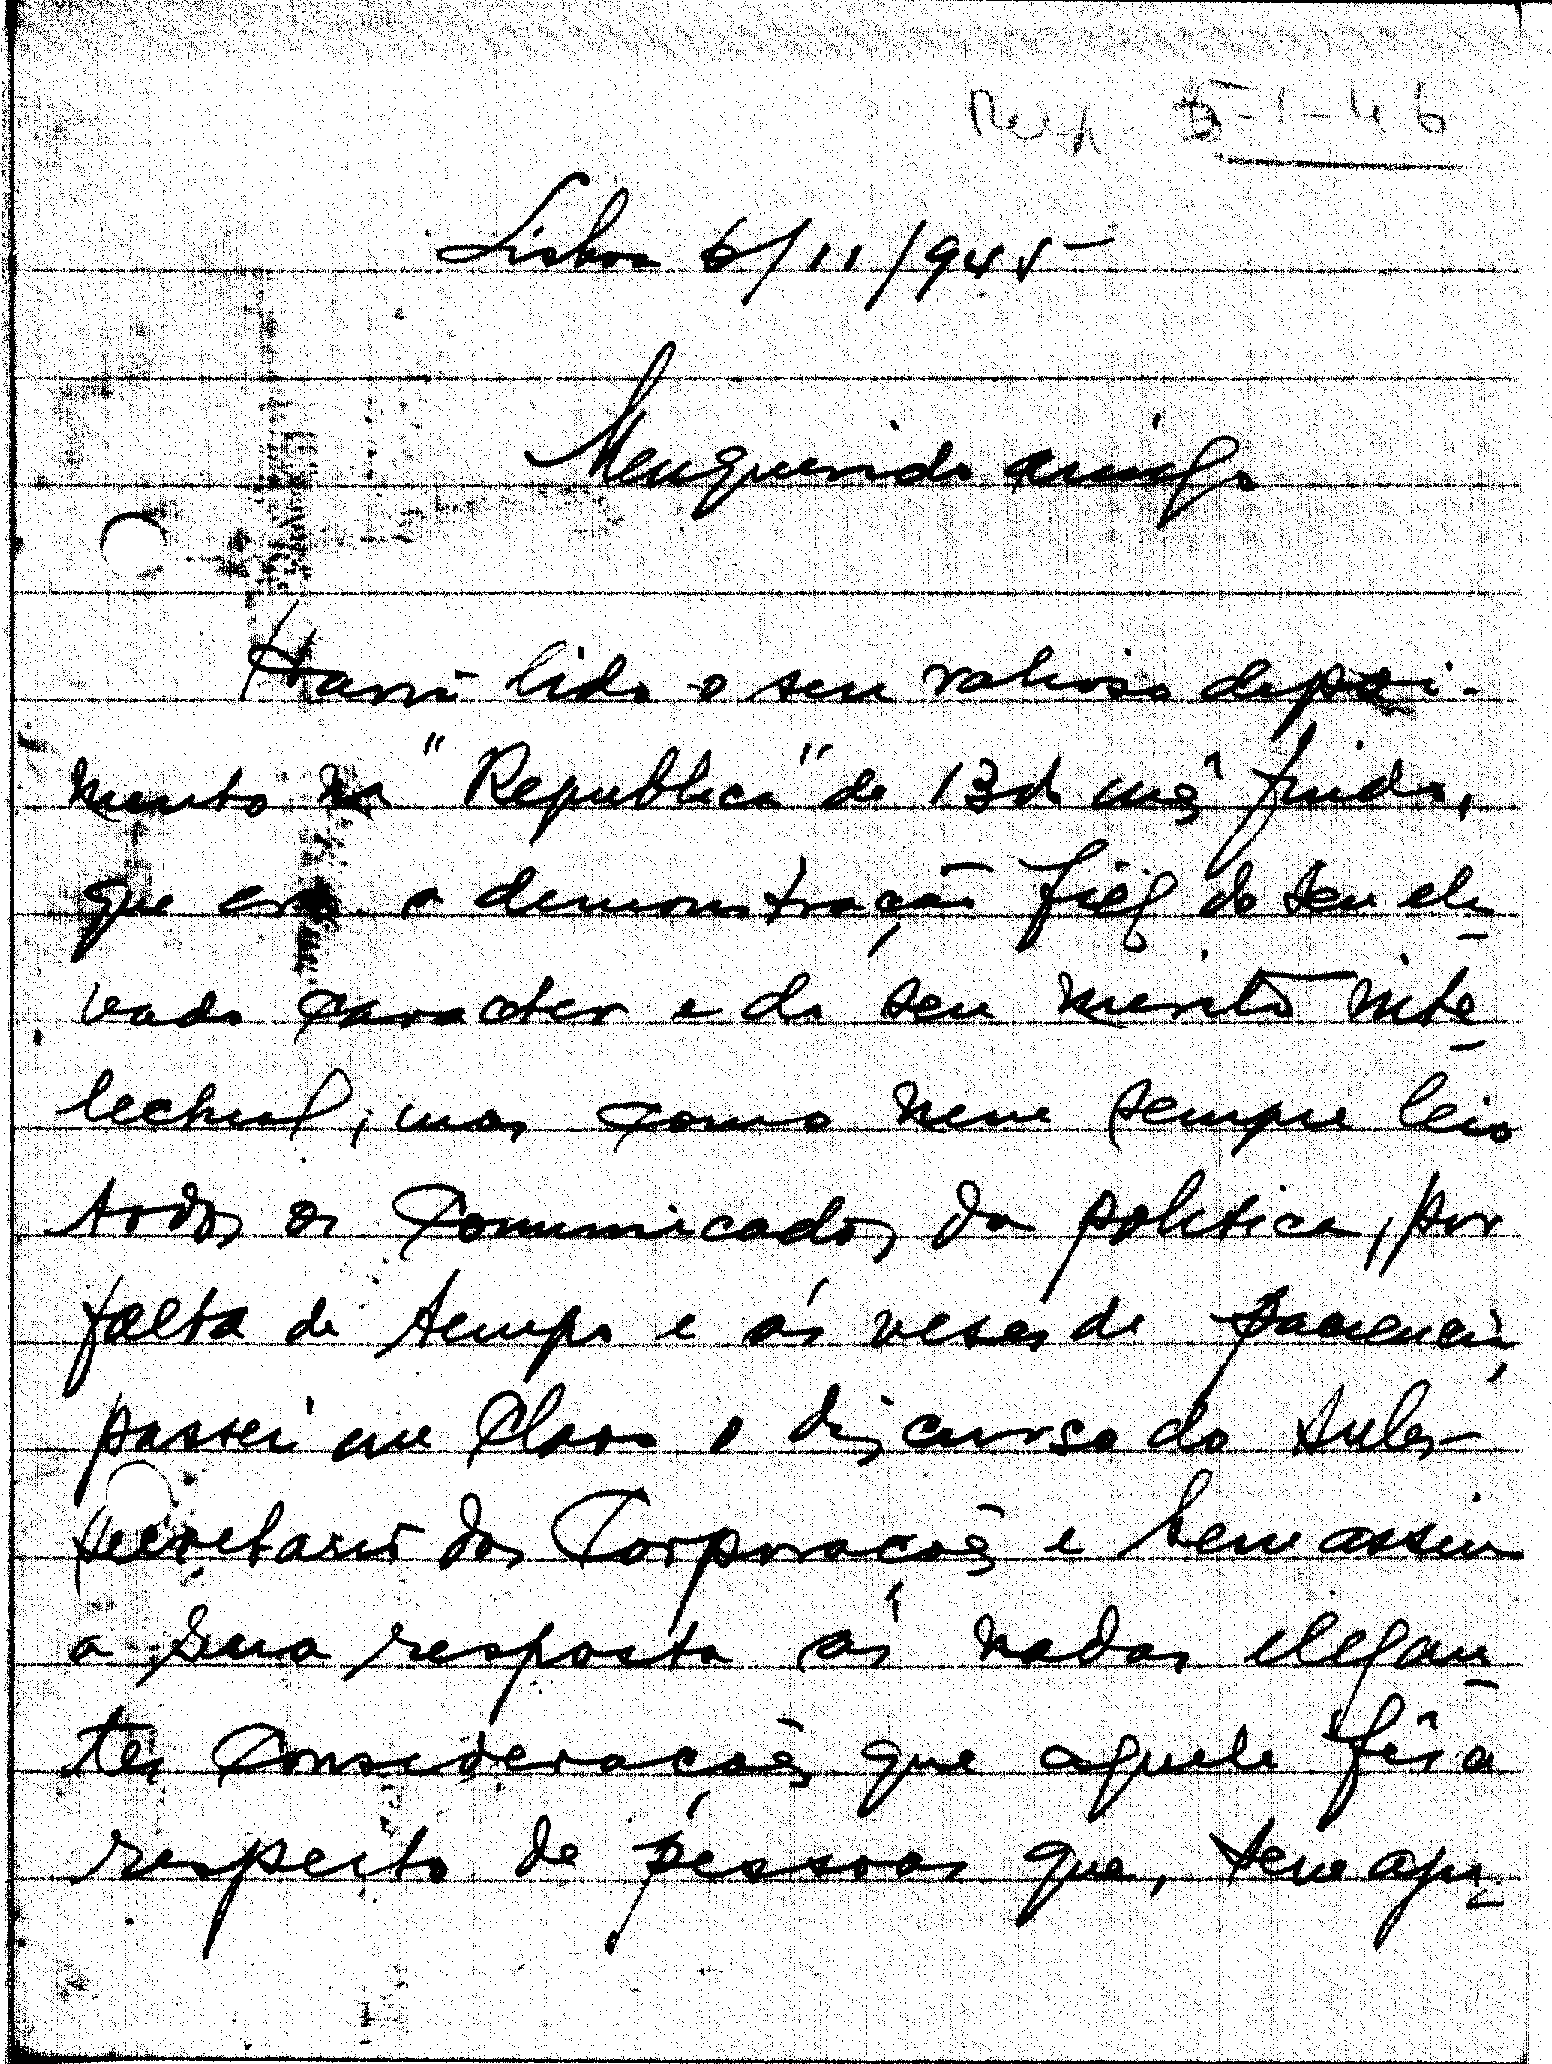 5-1-46
Lisboa 6/11/945-
Meu querido amigo
Havia lido o seu valioso depoi-
mento na "Republica" de 13 do mês findo,
que era a demonstração fiel do seu ele
vado caracter e do seu merito inte
lectual, mas como nem sempre leio
todos os comunicados da politica, por
falta de tempo e ás veses de paciencia,
passei em claro o discurso do sub-
secretario das Corporações e bem assim
a sua resposta ás nadas elegan
tes considerações que aquele fês a
respeito de pessoas que, tem apu